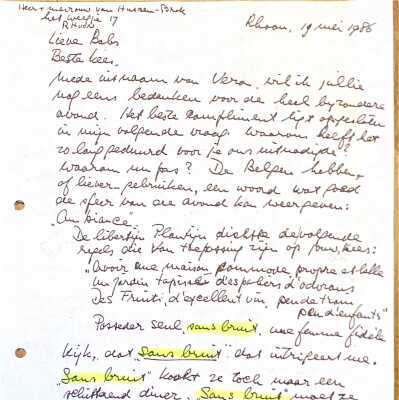 Heer + mevrouw van Hussen-Blok
het weegje 17
Rhoon
Rhoon, 19 mei 1986
Lieve Babs
Beste Kees,
Mede uit naam van Vera, wil ik jullie
nog eens bedanken voor die heel byzondere
avond. Het beste compliment ligt opgesloten
in mijn volgende vraag: waarom heeft het
zo lang geduurd voor je ons uitnodigde?
waarom nu pas? De Belgen hebben,
of liever - gebruiken, een woord wat goed
die sfeer van die avond kan weergeven:
"Ambiance".
De libertijn Plantijn dichtte de volgende
regels die van toepassing zijn op jouw, Kees:
"Avoir une maison commode, propre et belle
un jardin tapissé d'espaliers d'odorans
Des Fruits, d'excellent vin, peu de train
peu d'enfants"
Posseder seul, sans bruit, une femme fidèle
Kijk, dat "sans bruit" dat intrigeert me.
"Sans bruit" kookt ze toch maar een
schitterend diner. "Sans bruit" moet ze